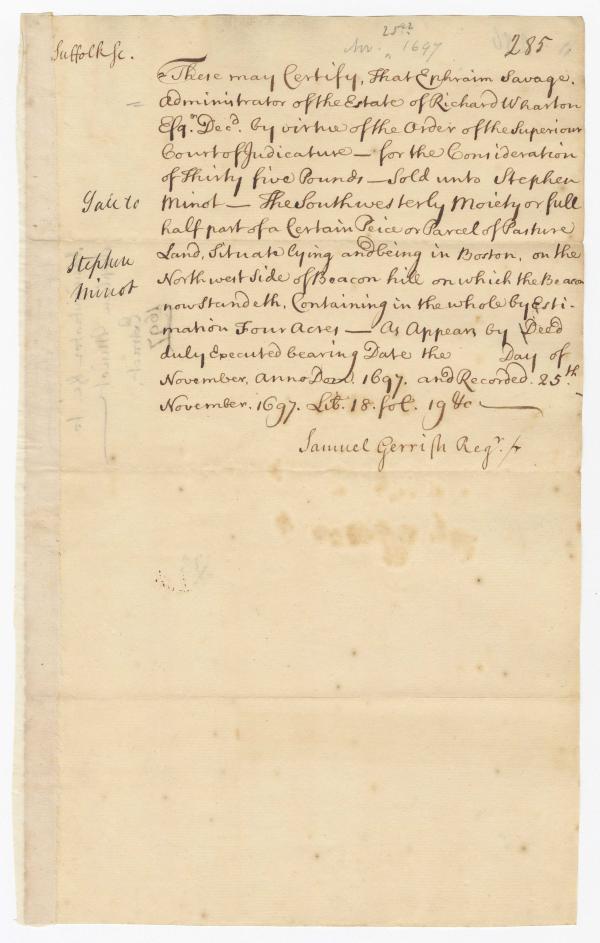 25th
Nov. " 1697
285
Suffolk sc.
These may Certify, that Ephraim Savage.
Administrator of the Estate of Richard Wharton
Esqr. Decd. by virtue of the Order of the Superiour
Court of Judicature — for the Consideration
of Thirty five Pounds — Sold unto Stephen
Minot — The Southwesterly Moiety or full
half part of a Certain Peice or Parcel of Pasture
Land, Situate lying and being in Boston, on the
Northwest Side of Beacon hill on which the Beacon
now Standeth, Containing in the whole by Esti-
mation Four Acres — As Appears by Deed
duly Executed bearing Date the Day of
November, Anno Dom. 1697. and Recorded. 25.th
November. 1697. Lib. 18. fol. 19 &c
to
Stephen
Minot
Samuel Gerrish Regr.
1697